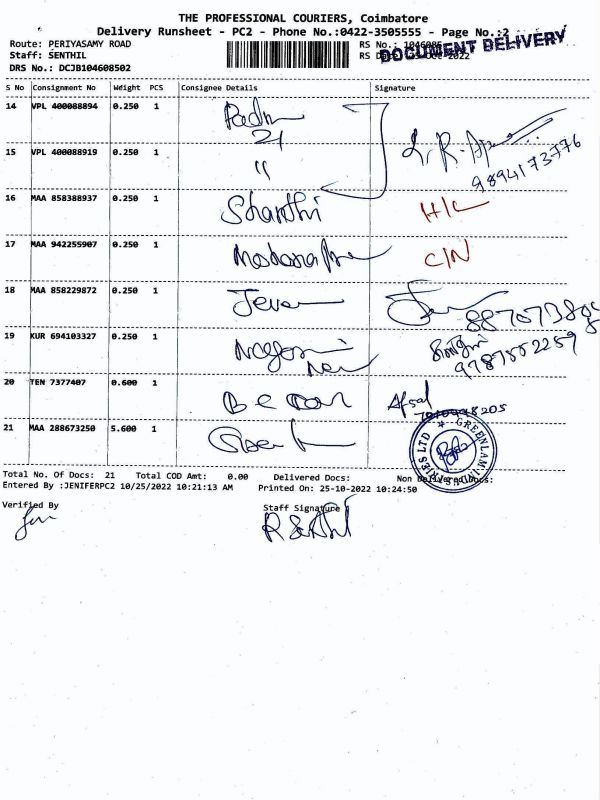 THE PROFESSIONAL COURIERS, Coimbatore
Delivery Runsheet - PC2 - Phone No.:0422-3505555 - Page No.:2
Route: PERIYASAMY ROAD
RS No.:
DOCUMENT DELIVERY
Staff: SENTHIL
RS 2022
DRS No.: DCJB104608502
S No Consignment No Weight PCS Consignee Details Signature
14 VPL 400088894 0.250 1 Padm
21
15 VPL 400088919 0.250 1 "
9894173776
16 MAA 858388937 0.250 1 Shanthi H/L
17 MAA 942255907 0.250 1 C/N
18 MAA 858229872 0.250 1 Jeva
19 KUR 694103327 0.250 1
9787552259
20 TEN 7377407 0.600 1 Afsal
21 MAA 288673250 5.600 1
GREENLAM INDUSTRIES LTD
Total No. Of Docs: 21 Total COD Amt: 0.00 Delivered Docs: Non Delivered Docs:
Entered By :JENIFERPC2 10/25/2022 10:21:13 AM Printed On: 25-10-2022 10:24:50
Verified By Staff Signature
R Senthil